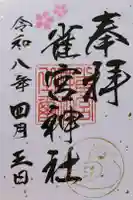 奉拝
雀宮神社
令和八年四月五日